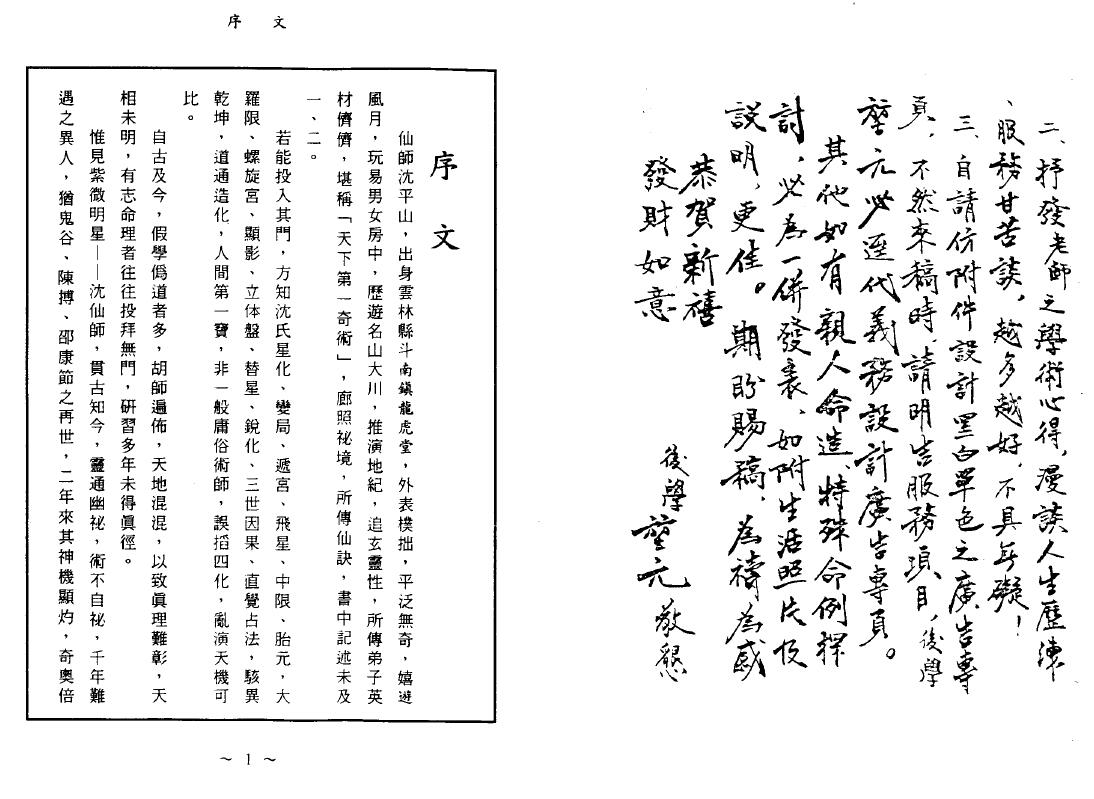 二、抒發老師之學術心得,漫談人生歷練
、服務甘苦談,越多越好,不具無礙!
三、自請仿附件設計黑白單色之廣告專
頁,不然來稿時,請明告服務項目,後學
堃元必逕代義務設計廣告專頁。
其他如有親人命造、特殊命例探
討,必為一併發表,如附生活照片及
說明,更佳。期盼賜稿,為禱為感
恭賀新禧
發財如意
後學 堃元 敬懇
序 文
序 文
仙師沈平山,出身雲林縣斗南鎮龍虎堂,外表樸拙,平泛無奇,嬉遊
風月,玩易男女房中,歷遊名山大川,推演地紀,追玄靈性,所傳弟子英
材儕儕,堪稱「天下第一奇術」,廊照祕境,所傳仙訣,書中記述未及
一、二。
若能投入其門,方知沈氏星化、變局、遞宮、飛星、中限、胎元,大
羅限、螺旋宮、顯影、立体盤、替星、銳化、三世因果、直覺占法,駭異
乾坤,道通造化,人間第一寶,非一般庸俗術師,誤搯四化,亂演天機可
比。
自古及今,假學僞道者多,胡師遍佈,天地混混,以致眞理難彰,天
相未明,有志命理者往往投拜無門,研習多年未得眞徑。
惟見紫微明星——沈仙師,貫古知今,靈通幽祕,術不自祕,千年難
遇之異人,猶鬼谷、陳摶、邵康節之再世,二年來其神機顯灼,奇奧倍
~ 1 ~